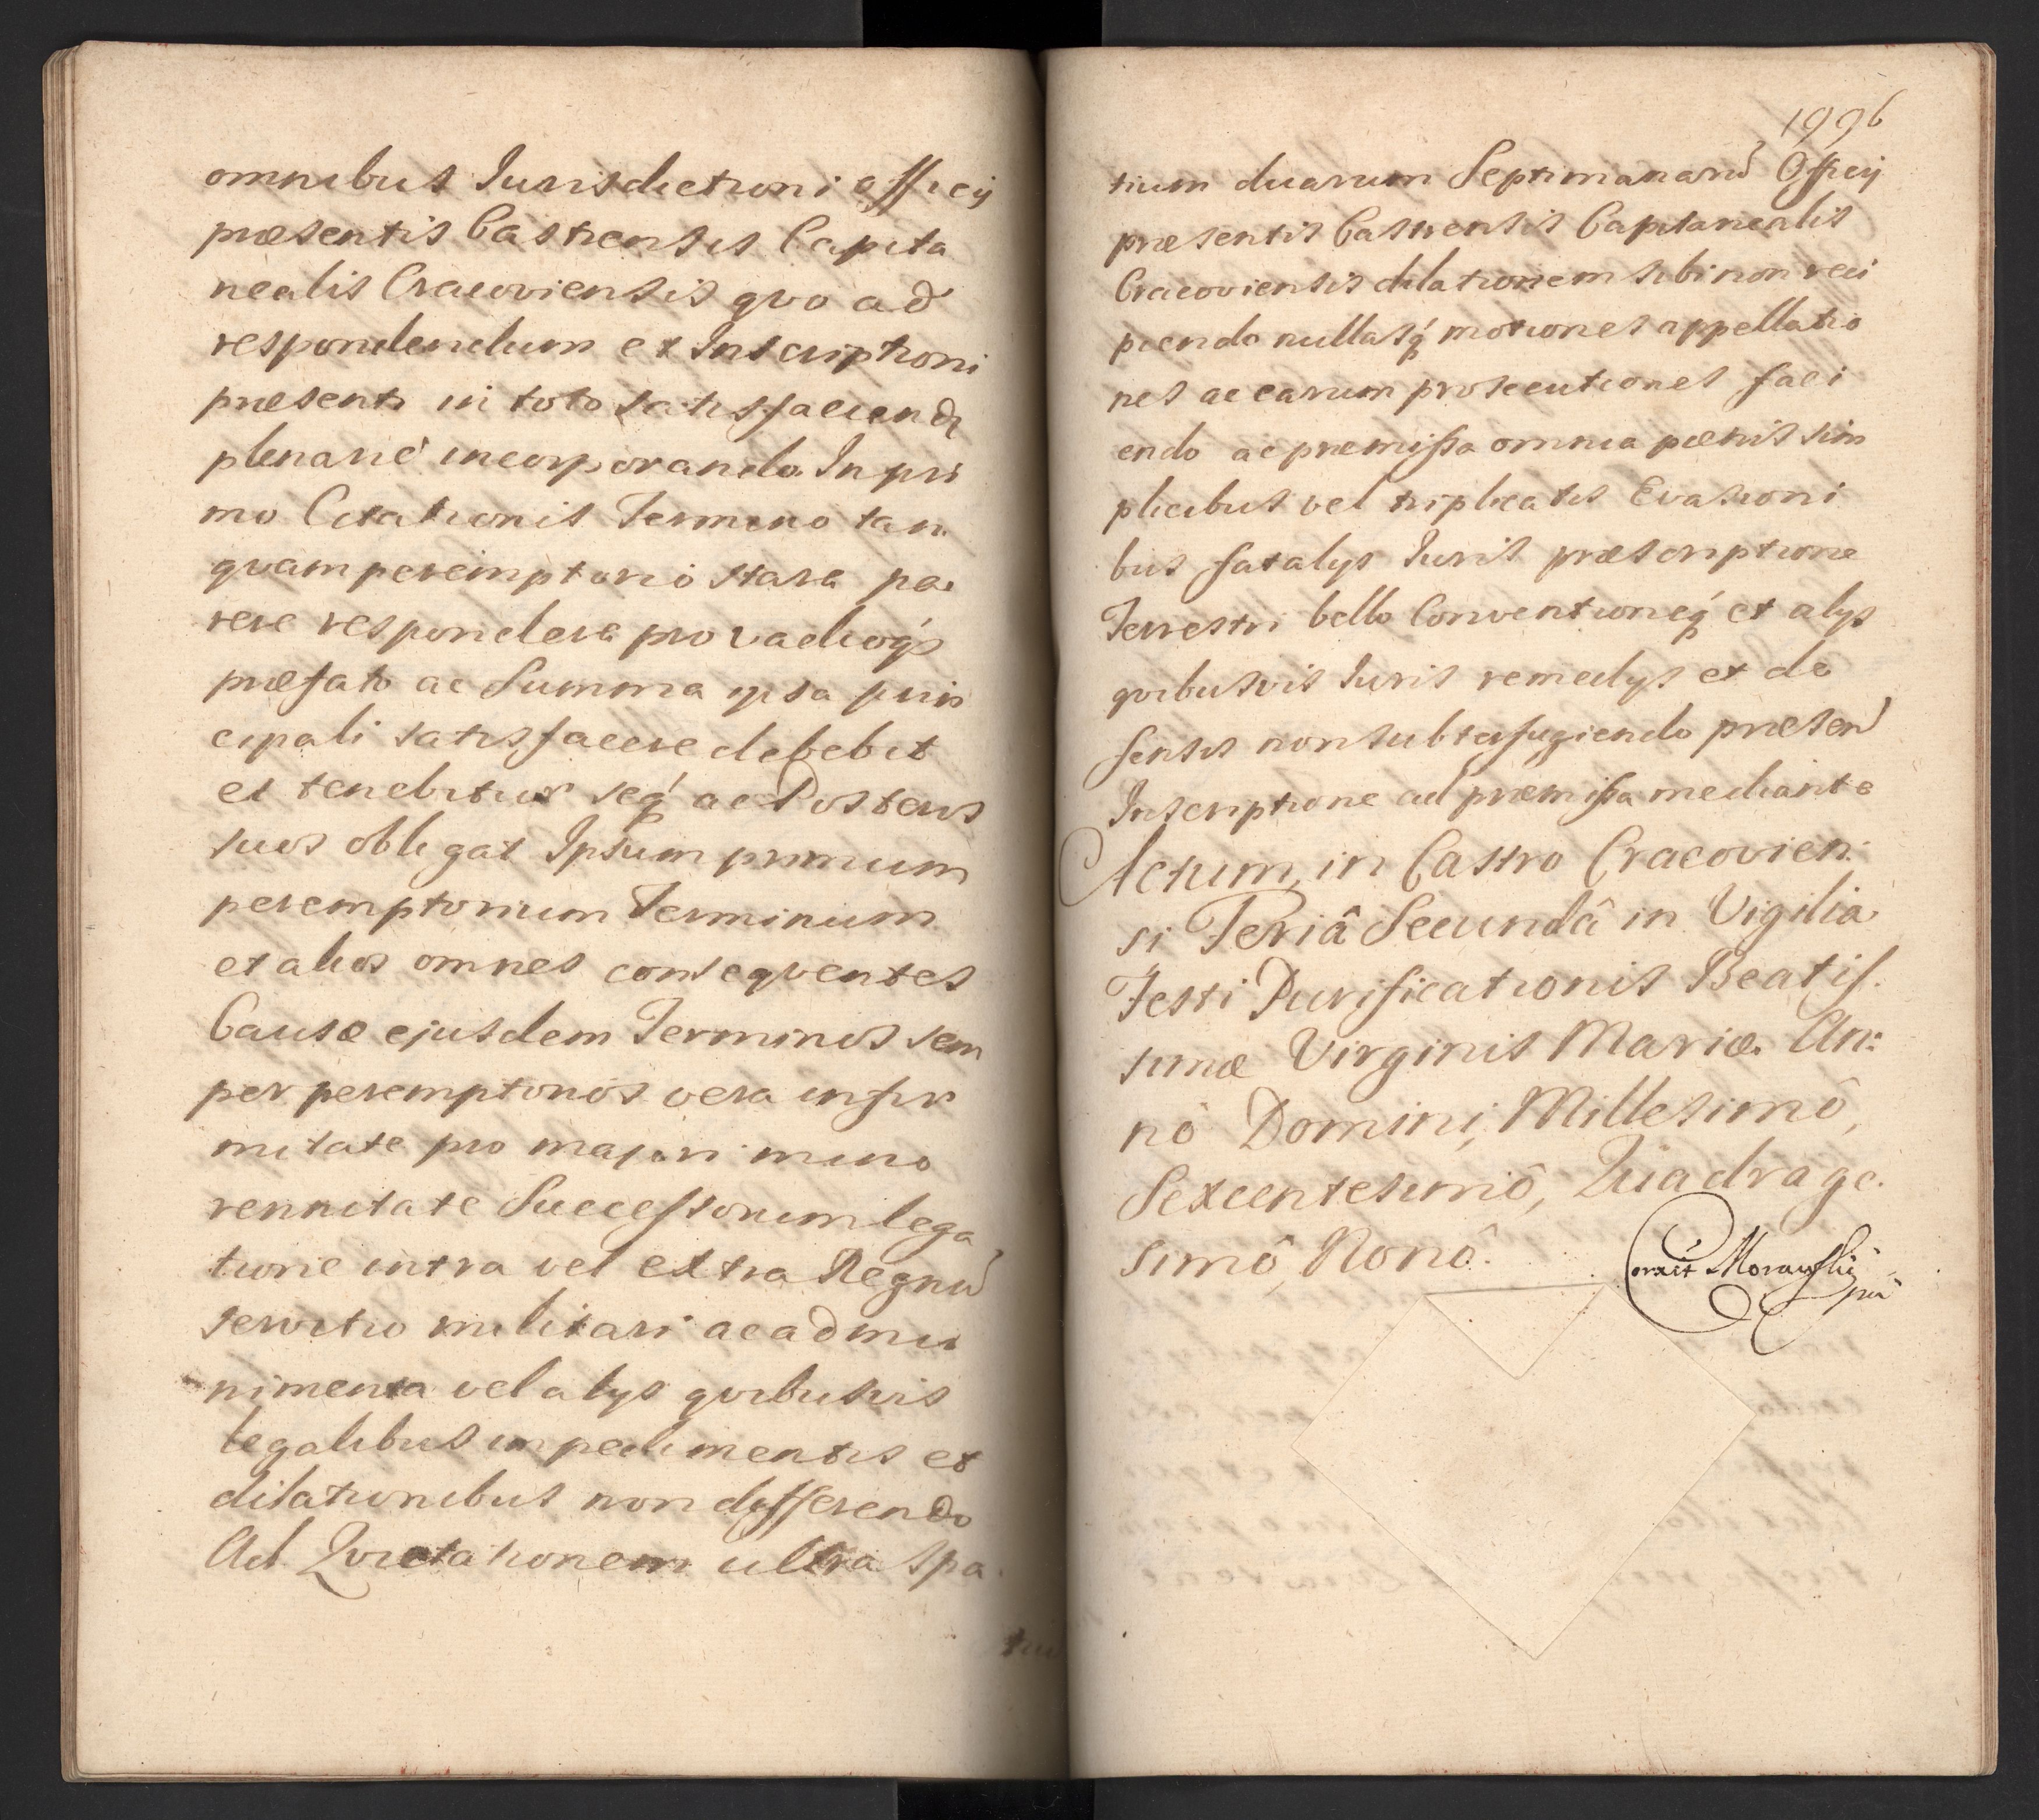 omnibus Iurisdictioni officÿ
præsentis Castrensis Capita
nealis Cracoviensis qvo ad
respondendum et Inscriptioni
præsenti in toto satisfaciendụ
plenariè incorporando. In pri
mo Citationis Termino tan
qvam peremptorio stare pa
rere respondere pro vadioq́
præfato ac Summa ipsa prin
cipali satisfacere debebit
et tenebitur seq́ ac Posteros
suos obligat Ipsum primum
peremptorium Terminum
et alios omnes conseqventes
Causæ ejusdem Terminos sem
per peremptorios vera infir
mitate pro majori mino
rennitate Succeſsorum lega
tione intra vel extra Regnũ
servitio militari ac ad mu
nimenta vel alÿs qvibusvis
legalibus impedimentis et
dilationibus non differendo
Ad Qvietationem ultra spa
tiu
1996
tium duarum Septimanarũ Officÿ
præsentis Castrensis Capitanealis
Cracoviensis dilationem sibi non reci
piendo nullasq́ motiones appellatio
nes ac earum prosecutiones faci
endo ac præmiſsa omnia pænis sim
plicibus vel triplicatis Evasioni
bus fatalÿs Iuris præscriptione
Terrestri bello Conventioneq́ et alÿs
qvibusvis Iuris remedÿs et de
fensis non subterfugiendo præsen
Inscriptione ad præmiſsa mediante
Actum, in Castro Cracovien:
si Feriâ Secundâ in Vigilia
Festi Purificationis Beatiſ.
simæ Virginis Mariæ. An:
nô Domini, Millesimô,
Sexcentesimô, Quadrage.
simô, Nonô.
Morawſki